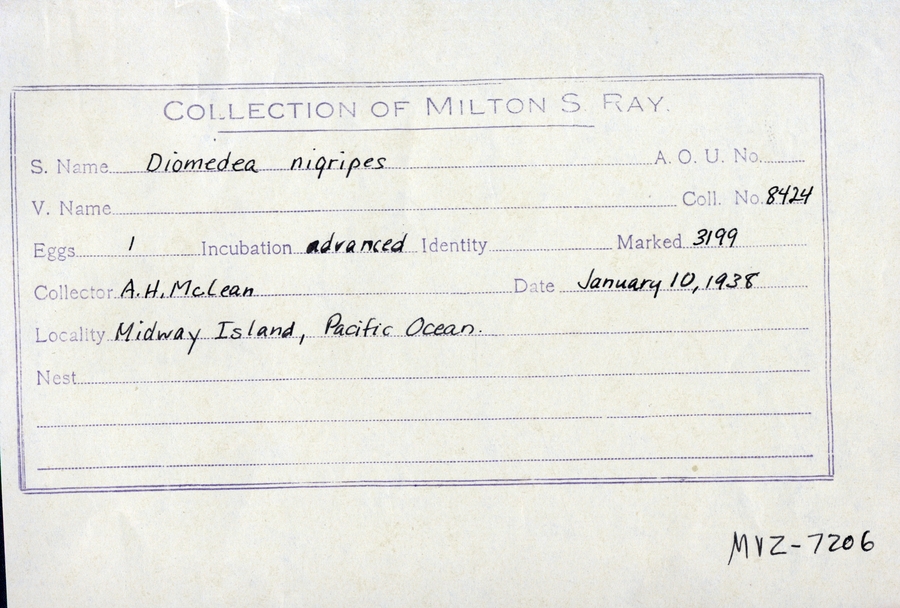 COLLECTION OF MILTON S. RAY.
S. Name Diomedea nigripes A. O. U. No.
V. Name Coll. No. 8424
Eggs 1 Incubation advanced Identity Marked 3199
Collector A.H. McLean Date January 10, 1938
Locality Midway Island, Pacific Ocean.
Nest
MVZ-7206